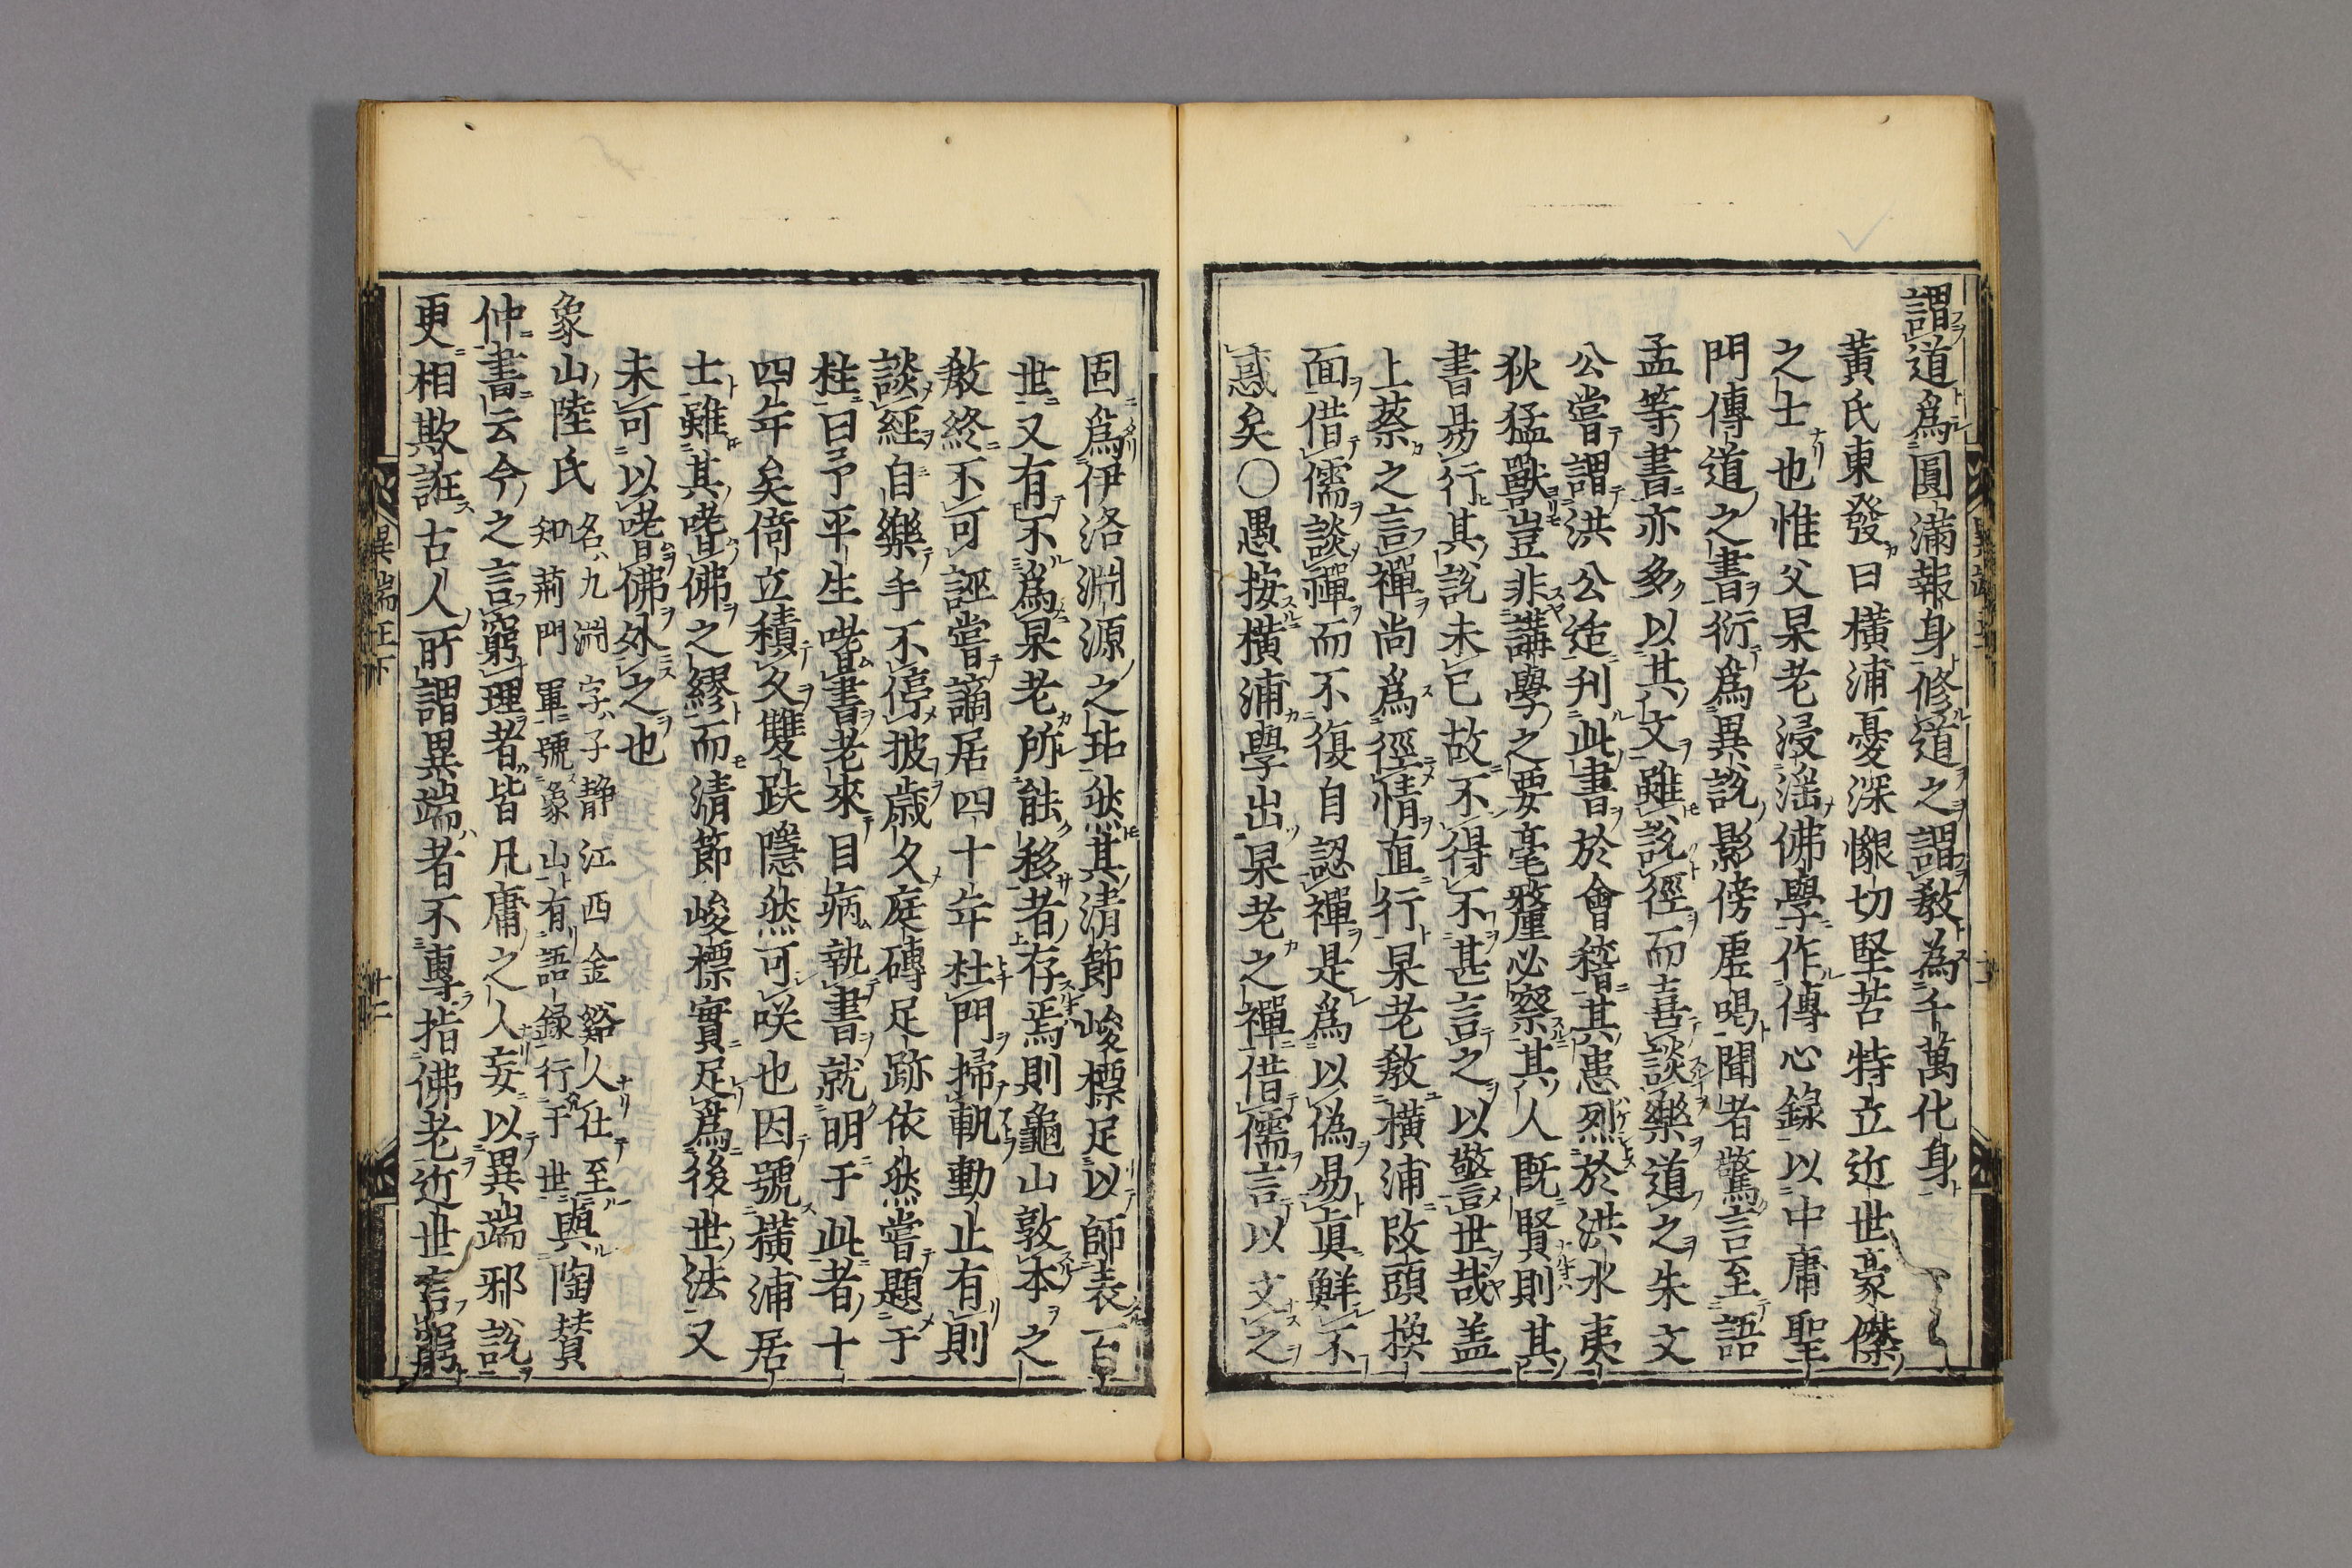 謂道爲圓滿報身修道之謂敎為千萬化身
黄氏東發曰橫浦憂深懇切堅苦特立近世豪傑
之士也惟父杲老浸淫佛學作傳心錄以中庸聖
門傳道之書衍爲異說影傍虚喝聞者驚言至語
孟等書亦多以其文雖說徑而喜談樂道之朱文
公嘗謂洪公适刋此書於會稽其患烈於洪水夷
狄猛獸豈非講學之要毫釐必察其人既賢則其
書易行其說未已故不得不甚言之以警世哉盖
上蔡之言禪尚爲徑情直行杲老敎橫浦改頭換
面借儒談禪而不復自認禪是爲以偽易眞鮮不
惑矣〇愚按橫浦學出杲老之禪借儒言以文之
固爲伊洛淵源之玷然其清節峻標足以師表百
世又有不爲杲老所能移者存焉則龜山敦本之
敎終不可誣嘗謫居四十年杜門掃軌動止有則
談經自樂手不停披歳久庭磚足跡依然嘗題于
柱曰予平生嗜書老來目病執書就明于此者十
四年矣倚立積久雙趺隱然可咲也因號橫浦居
士雖其嗜佛之繆而清節峻標實足爲後世法又
未可以嗜佛外之也
象山陸氏 名九淵字子靜江西金谿人仕至
知荊門軍號象山有語錄行于世 與陶賛
仲書云今之言窮理者皆凡庸之人妄以異端邪說
更相欺誑古人所謂異端者不專指佛老近世言窮
異端正下
十二